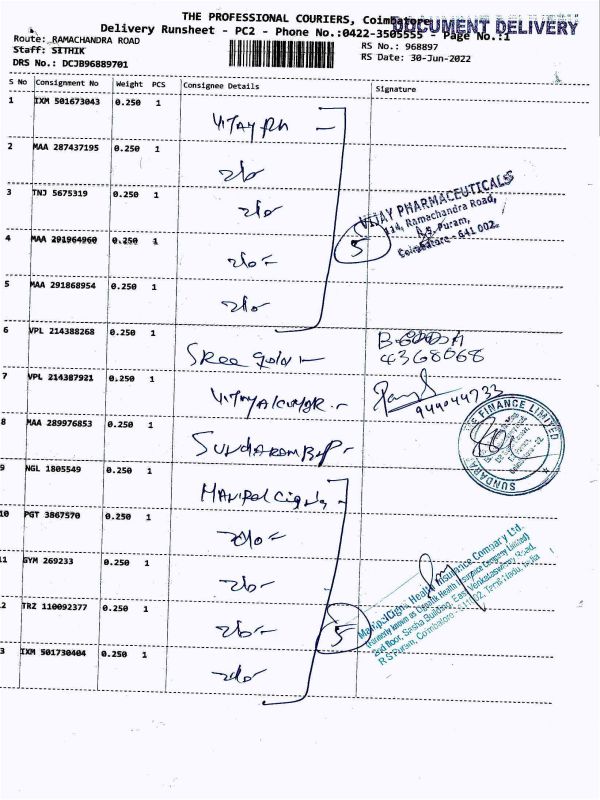 THE PROFESSIONAL COURIERS, Coimbatore
DOCUMENT DELIVERY
Delivery Runsheet - PC2 - Phone No.:0422-3505555 - Page No.:1
Route: RAMACHANDRA ROAD
RS No.: 968897
Staff: SITHIK
RS Date: 30-Jun-2022
DRS No.: DCJB96889701
S No Consignment No Weight PCS Consignee Details Signature
1 IXM 501673043 0.250 1
VIJAY Ph
2 MAA 287437195 0.250 1
3 TNJ 5675319 0.250 1
VIJAY PHARMACEUTICALS
114, Ramachandra Road,
R.S. Puram,
Coimbatore - 641 002.
4 MAA 291964960 0.250 1
5
5 MAA 291868954 0.250 1
6 VPL 214388268 0.250 1
Sree gold
4368068
7 VPL 214387921 0.250 1
VIJAYAKUMAR
8 MAA 289976853 0.250 1
SUNDARAM
FINANCE LIMITED
SUNDARA
9 NGL 1805549 0.250 1
Manipal cigna
10 PGT 3867570 0.250 1
11 GYM 269233 0.250 1
ManipalCigna Health Insurance Company Ltd.
(Formerly known as CignaTTK Health Insurance Company Limited)
2nd floor, Sesha Building, East Venkataswamy Road,
R S Puram, Coimbatore - 641002, Tamil Nadu, India
2 TRZ 110092377 0.250 1
5
3 IXM 501730404 0.250 1